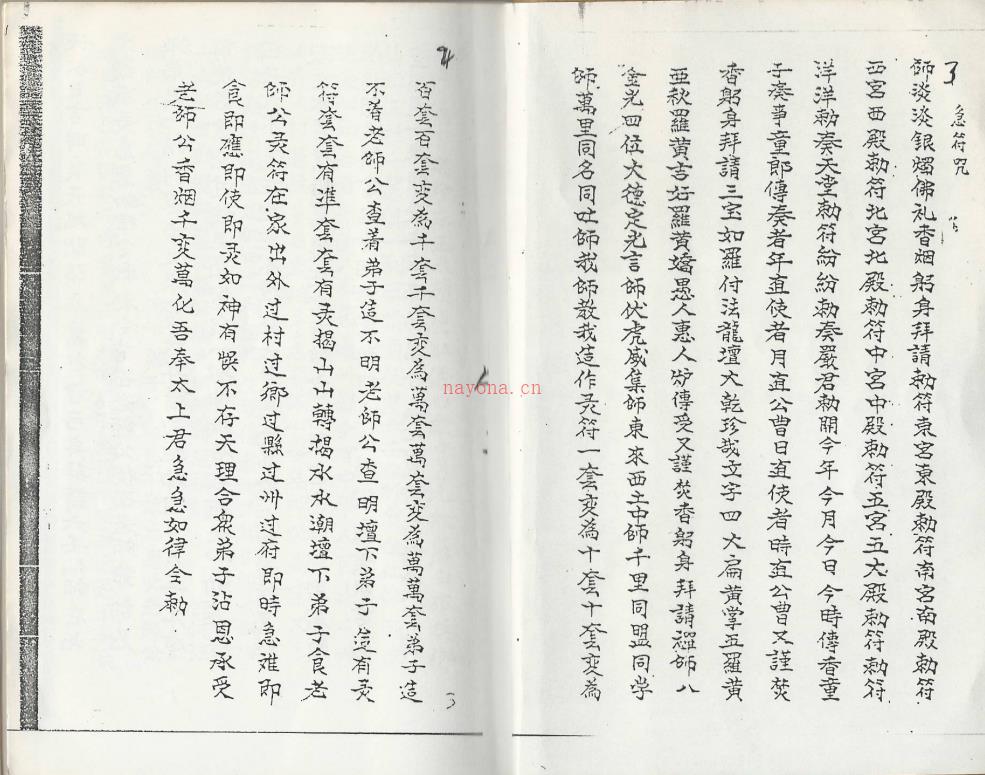 3
急符咒
師淡淡銀燭佛礼香烟躬身拜請勅符東宮東殿勅符南宮南殿勅符
西宮西殿勅符北宮北殿勅符中宮中殿勅符五宮五大殿勅符勅符
洋洋勅奏天堂勅符紛紛勅奏嚴君勅開今年今月今日今時傳香童
子奏事童郎傳奏者年直使者月直公曹日直使者時直公曹又謹焚
香躬身拜請三宝如羅付法龍壇大乾珍哉文字四大扁黄掌五羅黄
亜秋羅黄吉好羅黄嬌愚人惠人妙傳受又謹焚香躬身拜請禪師八
金光四位大德定光言師伏虎威集師東來西土中師千里同盟同学
師萬里同名同吐師哉師教我造作灵符一套变為十套十套变為
百套百套变為千套千套变為萬套萬套变為萬萬套弟子造
不着老師公查着弟子造不明老師公查明壇下弟子造有灵
符套套有準套套有灵揭山山轉揭水水潮壇下弟子食老
師公灵符在家出外过村过鄉过縣过州过府即時急难即
食即應即使即灵如神有悞不存天理合衆弟子沾恩承受
老師公香烟千变萬化吾奉太上君急急如律令勅
nayona.cn